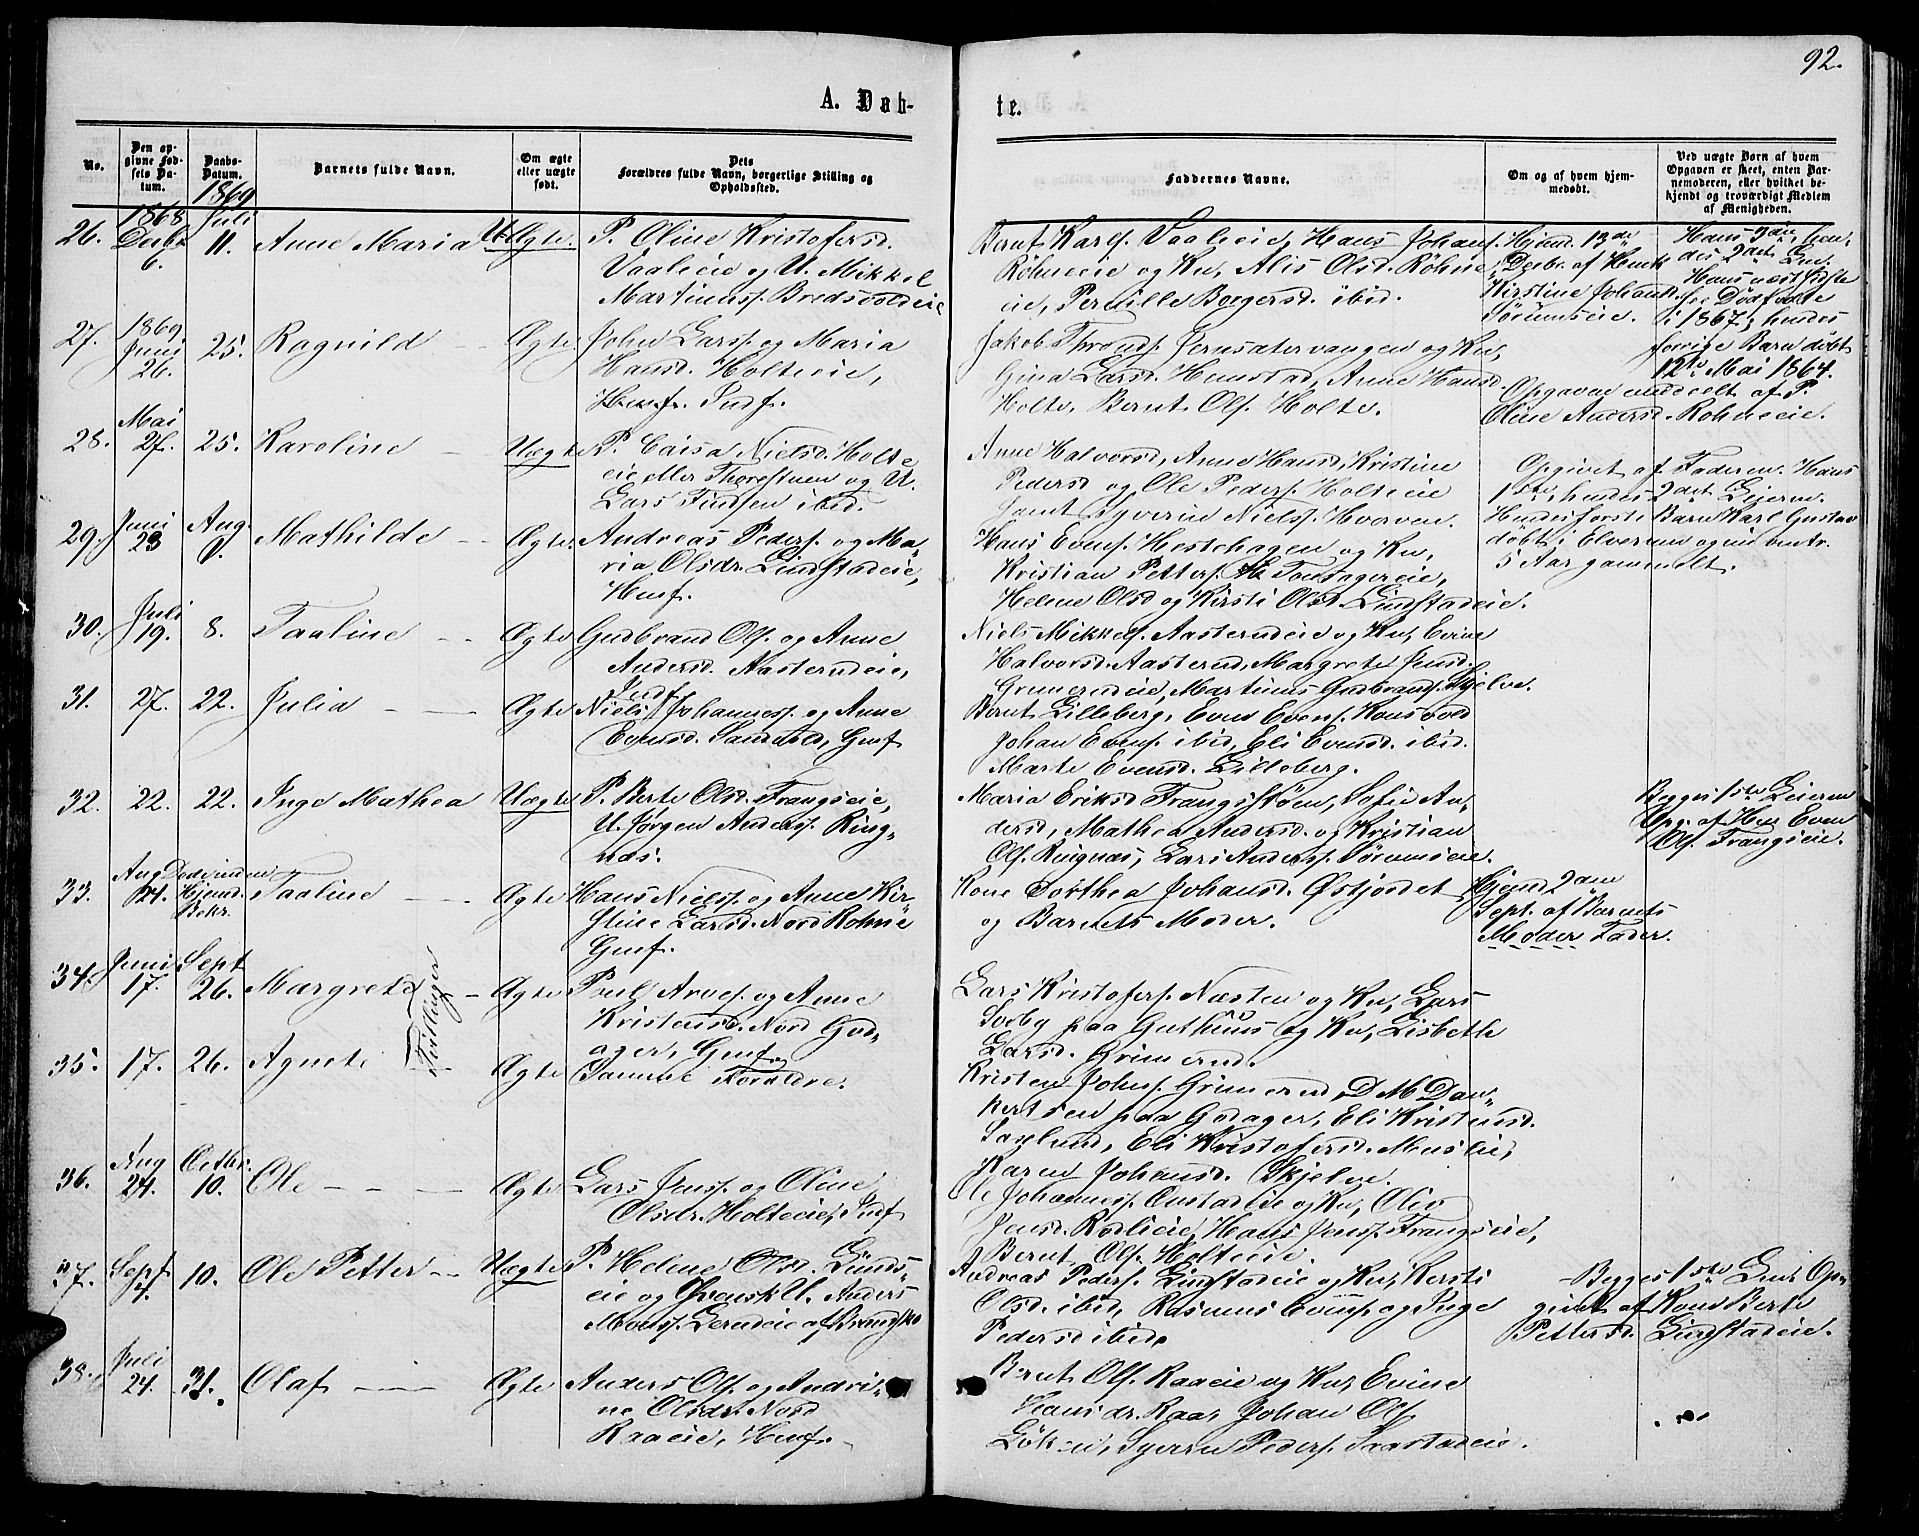 92.
A. Døb-
te.
No.
Den op-
givne Fød-
sels Da-
tum.
Daabs-
Datum.
Barnets fulde Navn.
Om ægte
eller uægte
født.
Dets
Forældres fulde Navn, borgerlige Stilling og
Opholdssted.
Faddernes Navne.
Om og af hvem hjem-
medøbt.
Ved uægte Børn af hvem
Opgaven er skeet, enten Bar-
nemoderen, eller hvilket be-
kjendt og troværdigt Medlem
af Menigheden.
26. 1868 Decbr 6. 1869 Juli 11. Anne Maria Uægte. P. Oline Kristofersd.
Vaalieie og U. Mikkel
Martinussf. Bredsvoldeie
Bernt Karlsf. Vaalieie, Hans Johansf.
Röhneeie og Ku, Alis Olsd. Röhne
eie, Pernille Borgersd. ibid.
Hjemd. 13de
Decbr. af Henrk
Kirstine Johansd.
Sörumseie.
Hans 3die, hen-
des 2det Lm.
Hans næstsidste
se Dødfødte
i 1867; hendes
forrige Barn døbt
12te Mai 1864.
Opgave meddeelt af P.
Oline Andersd. Röhneeie.
27. 1869 Juni 26. 25. Ragnild Ægte John Larsf. og Maria
Hansd. Holteeie,
Indf.
Jakob Thronds. Jernsætervangen og Ku,
Gina Larsd. Hemstad, Anne Hansd.
Holte, Bernt Olsf. Holte.
28. Mai 27. 25. Karoline Uægte P. Caisa Nielsd. Holte
eie eller Thorestuen og U.
Lars Finsen ibid.
Anne Halvorsd, Anne Hansd, Kristine
Pedersd og Ole Pedersf. Holteeie
samt Syverin Nielsf. Hvorven.
Opgivet af Faderen. Hans
1ste, hendes 2det Lejerm.
Hendes første Barn Karl Gustav
døbt i Elverum og nu omtr.
5 Aar gammelt.
29. Juni 23 Aug. Mathilde Ægte. Andreas Pedersf. og Ma-
ria Olsdr. Lundstadeie,
Husf.
Hans Evensf. Hestehagen og Ku,
Kristian Petters.
Helene Olsd og Kirsti Olsd. Lundstadeie.
30. Juli 19. 8. Taaline Ægte Gudbrand Olsf. og Anne
Andersd. Aasterudeie,
Indf.
Niels Mikkelsf. Aasterudeie og Ku, Evine
Halvorsd. Aasterud, Margrete Jensd.
Grimerudeie, Martinus Gudbrandsf. Skjelve.
31. 27. 22. Julia Ægte Niels Johannesf. og Anne
Evensd. Sandvold, Gmf
Bernt Lilleberg, Even Evensf. Konsvold
Johan Evensf. ibid, Eli Evensd. ibid.
Marte Evensd. Lilleberg.
32. 22. 22. Inge Mathea Uægte P. Berte Olsd. Frangseie,
U. Jörgen Andersf. Ring-
næs.
Maria Eriksd Frangsstøen, Sofie An-
dersd, Mathea Andersd. og Kristian
Olsf. Ringnæs, Lars Andersf. Sörumseie.
Begges 1ste Leierm
Opg. af Huus Even
Olsf. Frangseie.
33. Aug 24. Død inden Hjemd. Bekr. Taaline Ægte Hans Nielsf. og Anne Kir-
stine Larsd. Nord Rohne
Gmf.
Kone Dorthea Johansd. Østjordet
og Barnets Moder.
Hjemd 2den
Sept. af Barnets
Moder Fader.
34. Juni 17. Sept 26. Margrete Tvillinger Ægte Poul Arnesf. og Anne
Kristensd. Nord God-
ager, Gmf.
Lars Kristofersf. Næsten og Ku, Lars
Sveby paa Guthuus og Ku, Lisbeth
Larsd. Grimerud.
35. 17. 26. Agnete Ægte Samme Forældre.
Kristen Johnsf. Grimerud, D. M. Dan-
kertsen paa Godager, Eli Kristensd.
Saxlund, Eli Kristofersd. Muslie,
Karen Johansd. Skjelve.
36. Aug 24. Octbr. 10. Ole Ægte Lars Jensf. og Oline
Olsdr. Holteeie, Indf
Ole Johannesf. Onstadeie og Ku, Oliv
Jensd. Rodlieie, Hans Jensf. Frangseie,
Bernt Olsf. Holteeie.
37. Sept. 4. 10. Ole Petter Uægte P. Helene Olsd. Lunds-
eie og Gvensk U. Anders
Monsf. Lerudeie af
Andreas Pedersf. Lundstadeie og Ku, Kersti
Olsd. ibid, Rasmus Evensf. og Inge
Pedersd ibid.
Begges 1ste Lm. Op-
givet af Kone Berte
Pettersd. Lundstadeie.
38. Juli 24. 31. Olaf Ægte Anders Olsf. og Andri-
ne Olsdr. Nord
Raaeie, Husf.
Bernt Olsf. Raaeie og Ku, Evine
Hansdr. Raa, Johan Olsf.
Löken, Syverin Pedersf. Saastadeie.